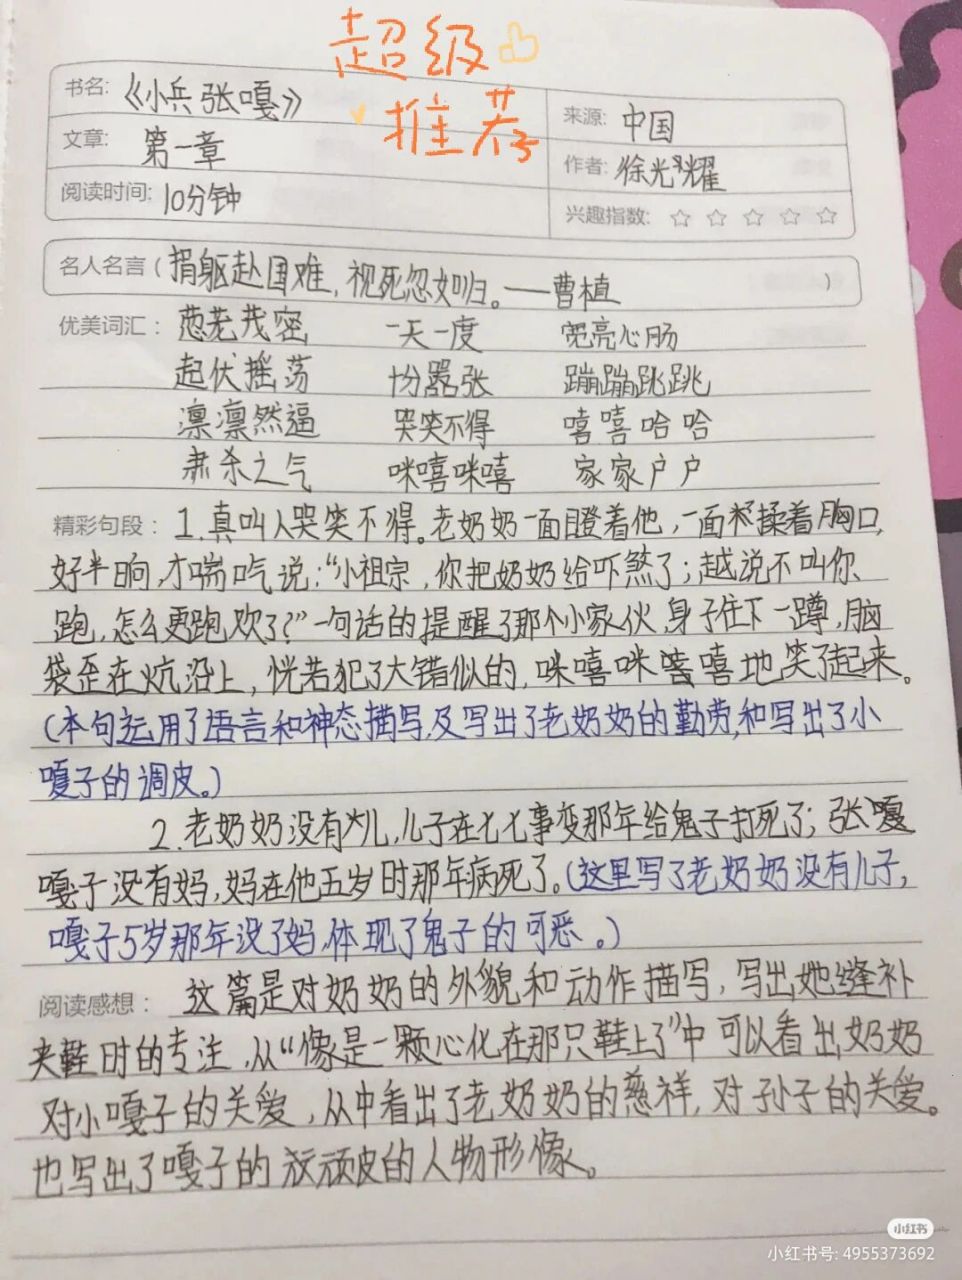 超级
推荐
书名: 《小兵张嘎》
来源: 中国
文章: 第一章
作者: 徐光耀
阅读时间: 10分钟
兴趣指数: ☆ ☆ ☆ ☆ ☆
名人名言 ( 捐躯赴国难，视死忽如归。——曹植 )
优美词汇: 葱茏茂密 一天一度 宽亮心肠
起伏摇荡 嚣张 蹦蹦跳跳
凛凛然逼 哭笑不得 嘻嘻哈哈
肃杀之气 咪嘻咪嘻 家家户户
精彩句段: 1.真叫人哭笑不得。老奶奶一面瞪着他，一面揉着胸口,
好半晌,才喘吃说:“小祖宗，你把奶奶给吓煞了；越说不叫你
跑,怎么更跑欢了?”一句话的提醒了那个小家伙,身子往下一蹲,脑
袋歪在炕沿上，恍若犯了大错似的,咪嘻咪嘻嘻地笑了起来。
(本句运用了语言和神态描写,及写出了老奶奶的勤劳,和写出了小
嘎子的调皮。)
2.老奶奶没有儿,儿子在七七事变那年给鬼子打死了;张嘎
嘎子没有妈,妈在他五岁时那年病死了。(这里写了老奶奶没有儿子,
嘎子5岁那年没了妈.体现了鬼子的可恶。)
阅读感想: 这篇是对奶奶的外貌和动作描写,写出她缝补
夹鞋时的专注,从“像是一颗心化在那只鞋上了”中可以看出,奶奶
对小嘎子的关爱,从中看出了老奶奶的慈祥,对孙子的关爱。
也写出了嘎子的顽皮的人物形像。
小红书
小红书号: 4955373692